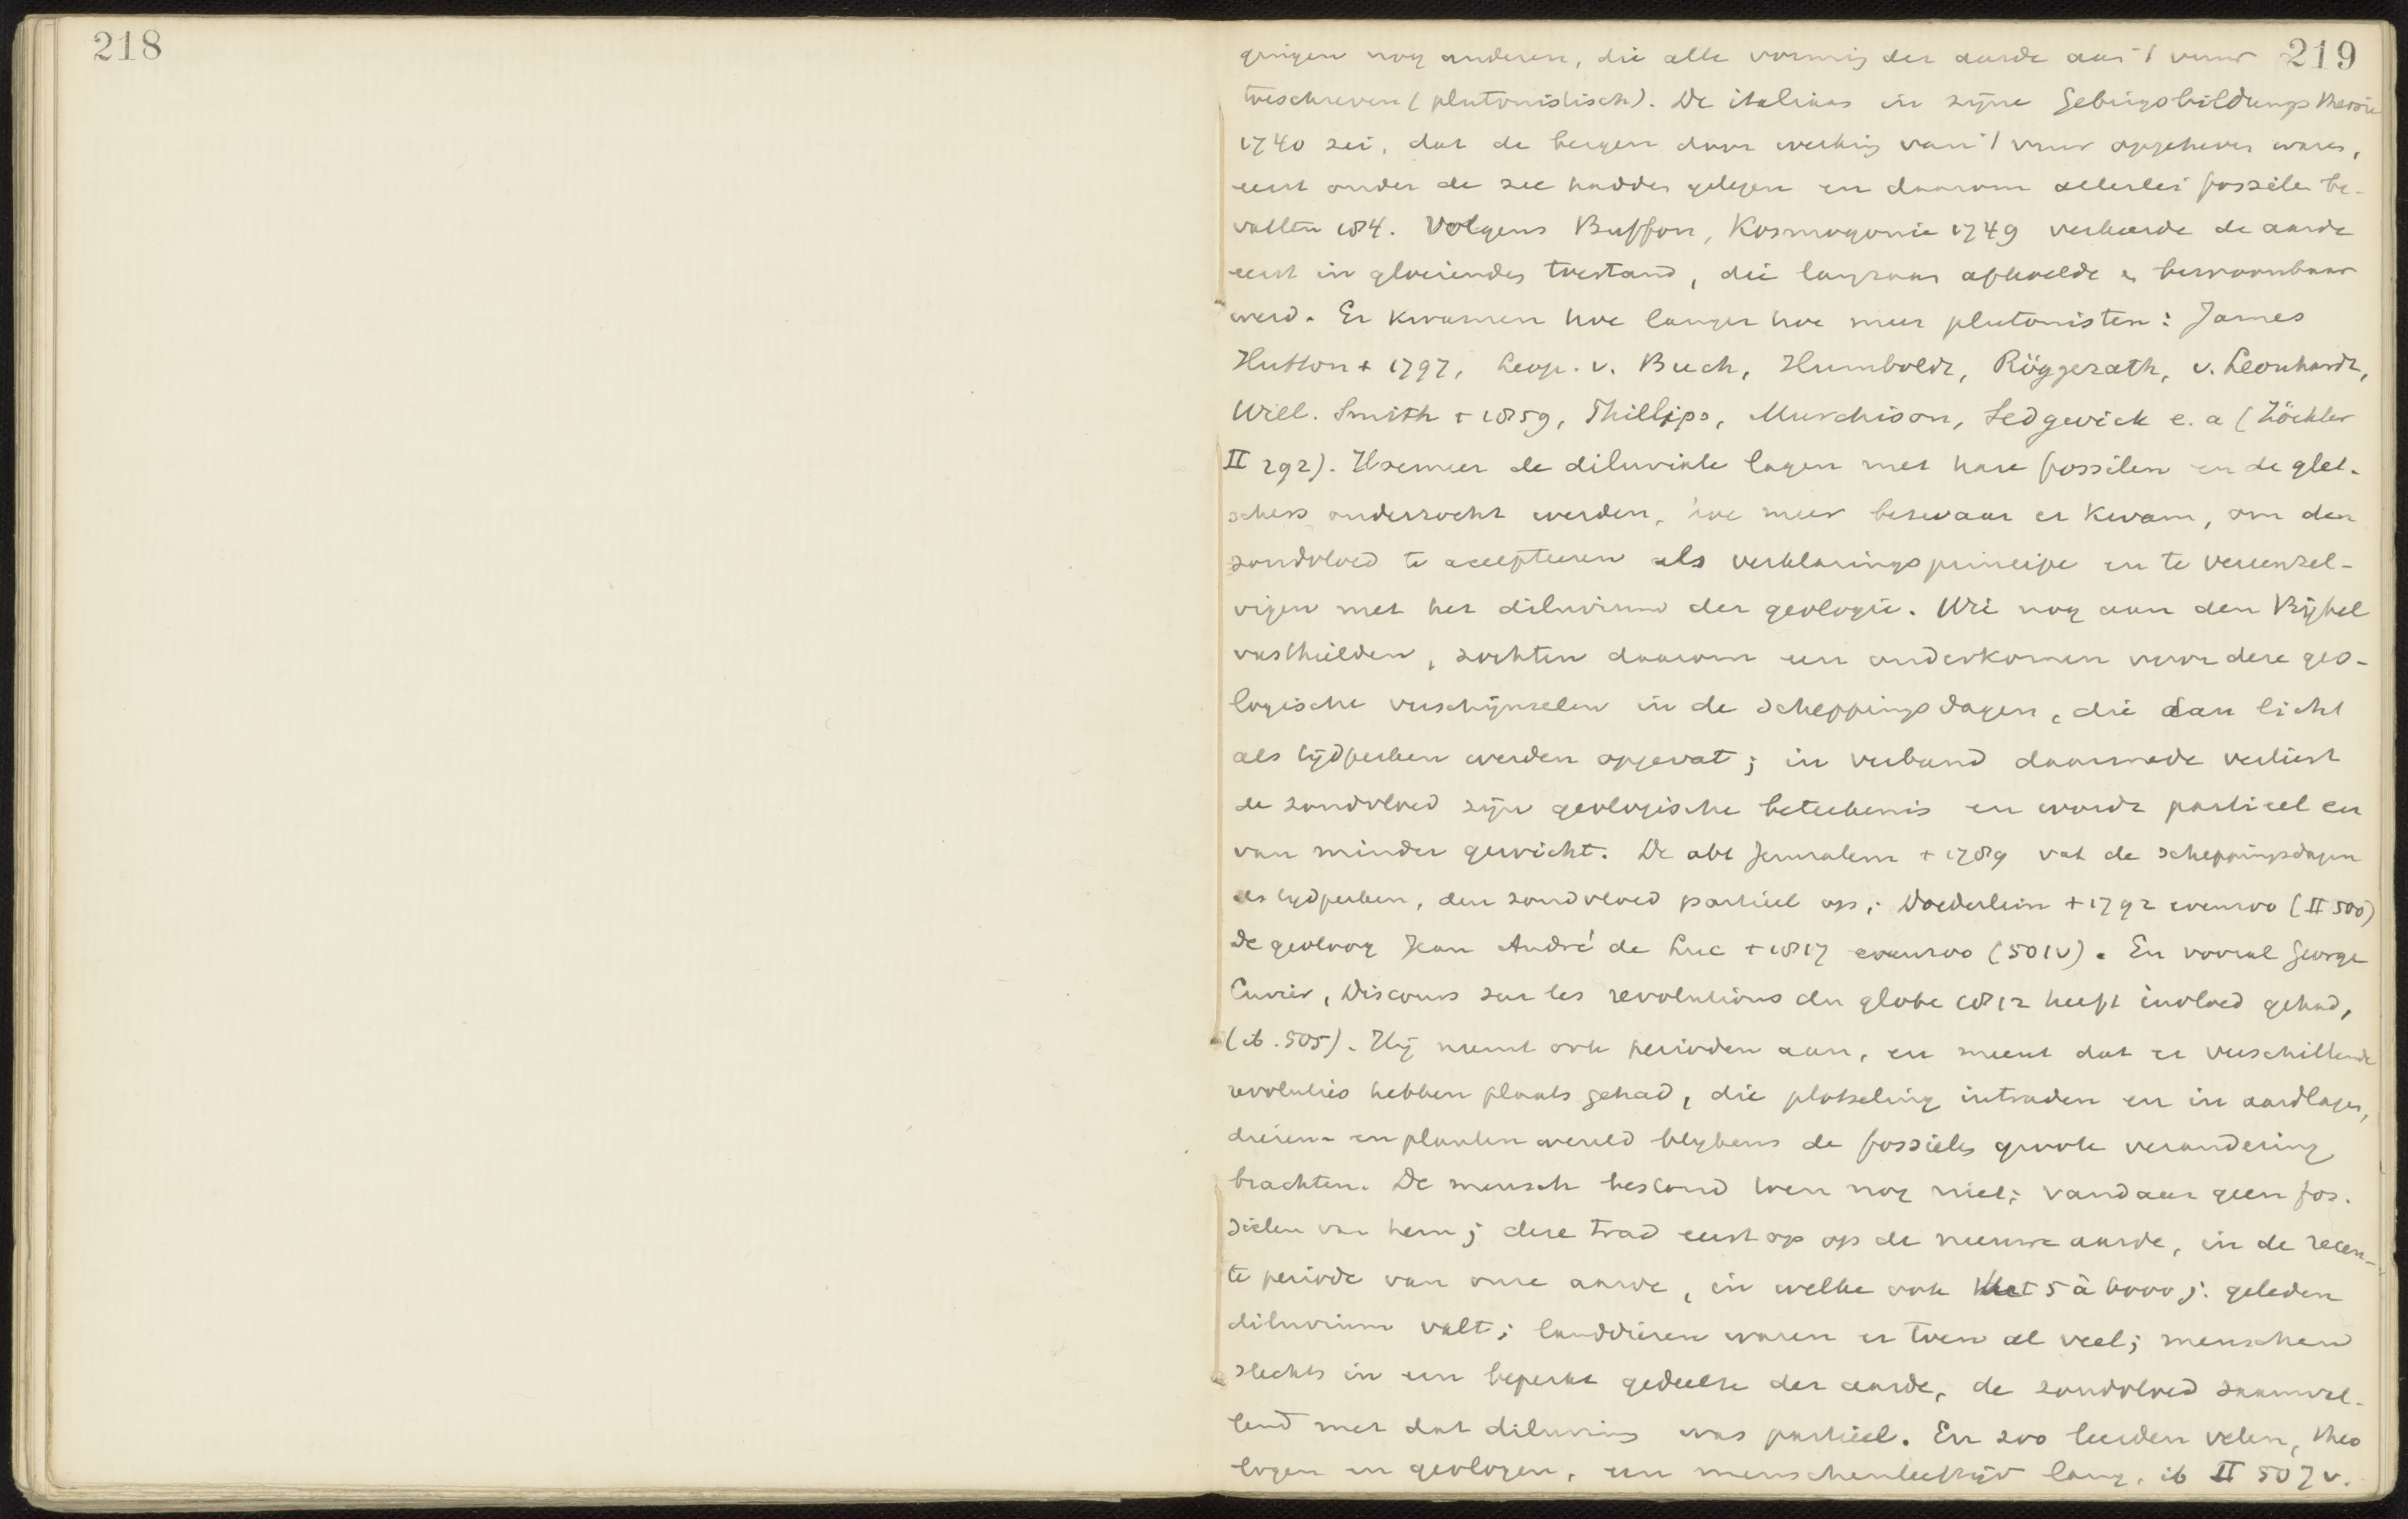 218
219
gingen nog anderen, die alle vorming der aarde aan 't vuur
toeschreven (plutonistisch). De italiaan in zijne Gebirgsbildungstheorie
1740 zei, dat de bergen door werking van 't vuur opgeheven waren,
eerst onder de zee hadden gelegen en daarom allerlei fossielen be-
vatten 184. Volgens Buffon, Kosmogonie 1749 verkeerde de aarde
eerst in gloeienden toestand, die langzaam afkoelde en bewoonbaar
werd. Er kwamen hoe langer hoe meer plutonisten: James
Hutton + 1797, Leop. v. Buch, Humboldt, Röggerath, v. Leonhardt,
Will. Smith + 1859, Phillips, Murchison, Sedgevick e. a (Zöckler
II 292). Hoemeer de diluviale lagen met hare fossilen en de glet-
schers onderzocht werden, hoe meer bezwaar er kwam, om den
zondvloed te accepteeren als verklaringsprincipe en te vereenzel-
vigen met het diluvium der geologie. Wie nog aan den Bijbel
vasthielden, zochten daarom een onderkomen voor deze geo-
logische verschijnselen in de scheppingsdagen, die dan licht
als tijdperken werden opgevat; in verband daarmede verliest
de zondvloed zijn geologische beteekenis en wordt partieel en
van minder gewicht. De abt Jerusalem + 1789 vat de scheppingsdagen
als tijdperken, den zondvloed partieel op; Doederlein + 1792 evenzoo (II 500)
De geoloog Jean André de Luc + 1817 evenzoo (501v). En vooral George
Cuvier, Discours sur les revolutions du globe 1812 heeft invloed gehad,
(ib. 505). Hij neemt ook perioden aan, en meent dat er verschillende
revoluties hebben plaats gehad, die plotseling intraden en in aardlagen,
dieren- en plantenwereld blijkens de fossielen groote verandering
brachten. De mensch bestond toen nog niet; vandaar geen fos-
sielen van hem; deze trad eerst op op de nieuwe aarde, in de recen-
te periode van onze aarde, in welke ook het 5 à 6000 j. geleden
diluvium valt; landdieren waren er toen al veel; menschen
slechts in een beperkt gedeelte der aarde, de zondvloed saamval-
lend met dat diluvium was partieel. En zoo leerden velen, theo
logen en geologen, een menschenleeftijd lang. ib II 507v.